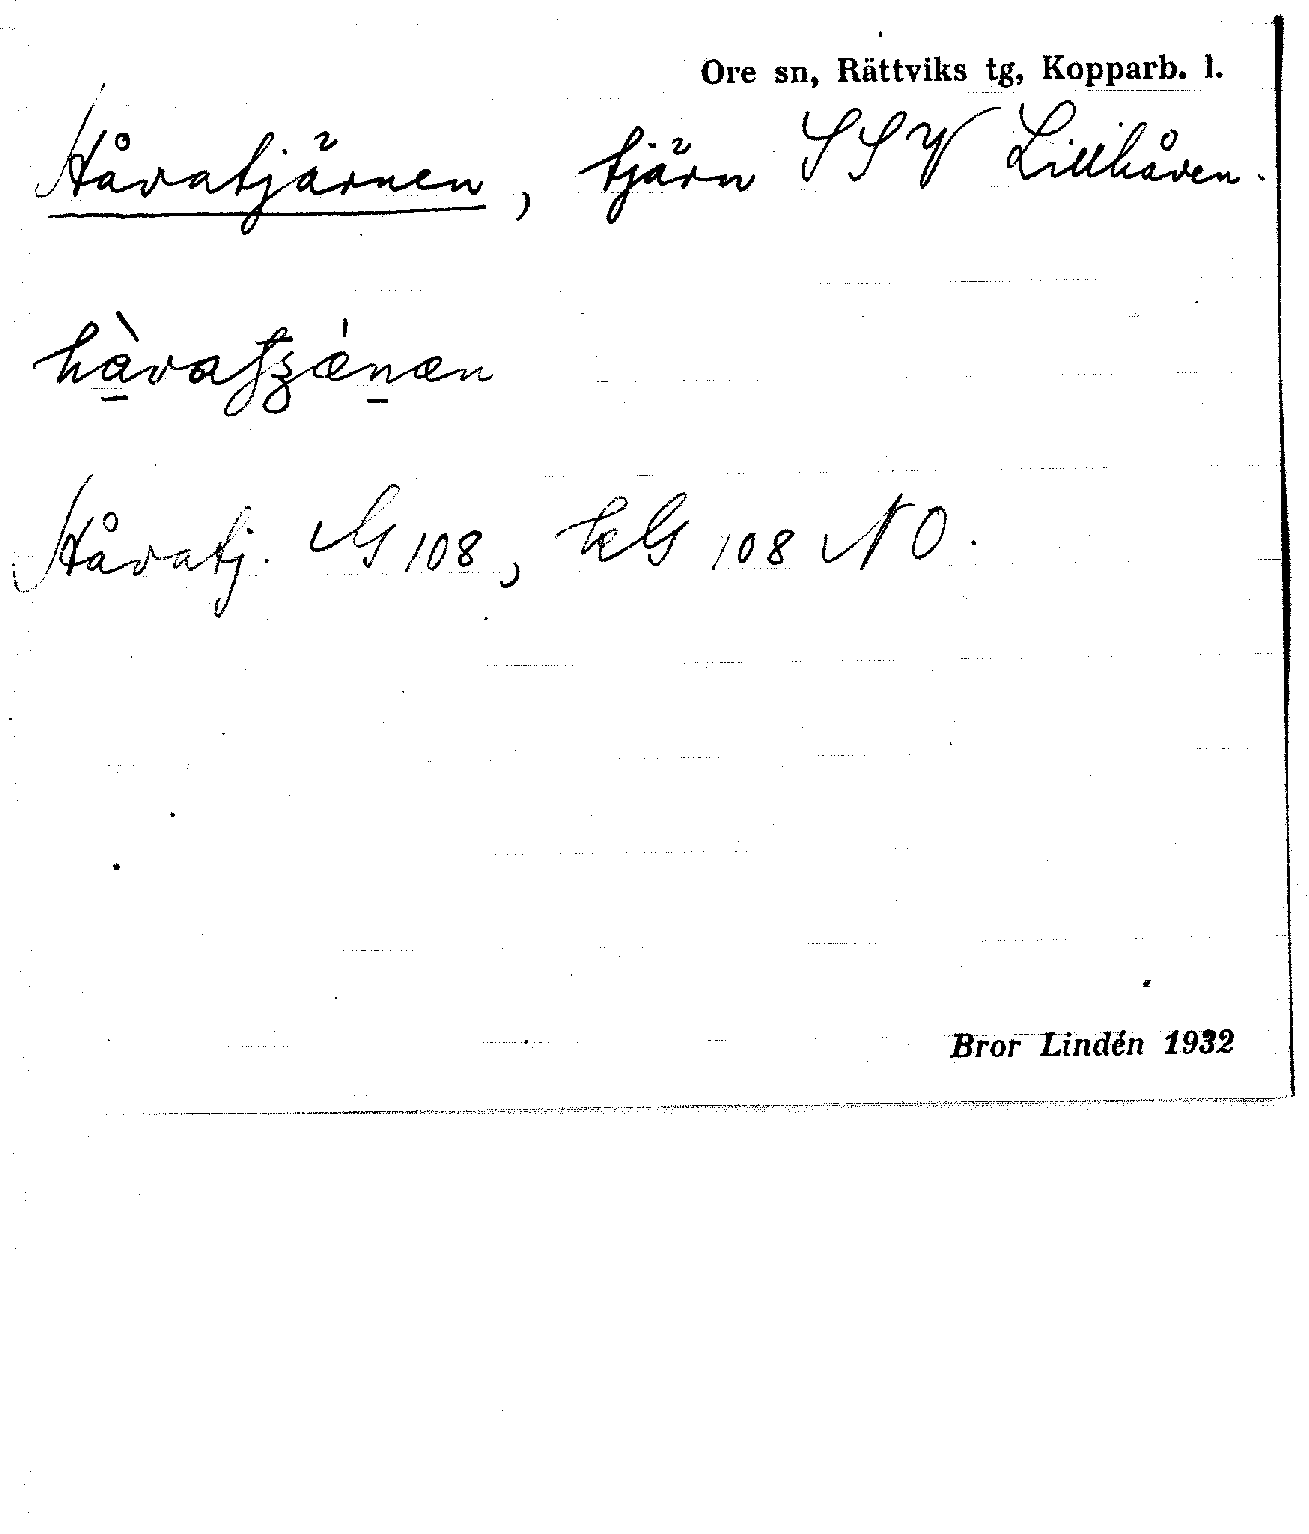 Ore sn, Rättviks tg, Kopparb. l.
Håvatjärnen, tjärn SSV Lillhåven.
Håvatj. G 108, kG 108 NO.
Bror Lindén 1932